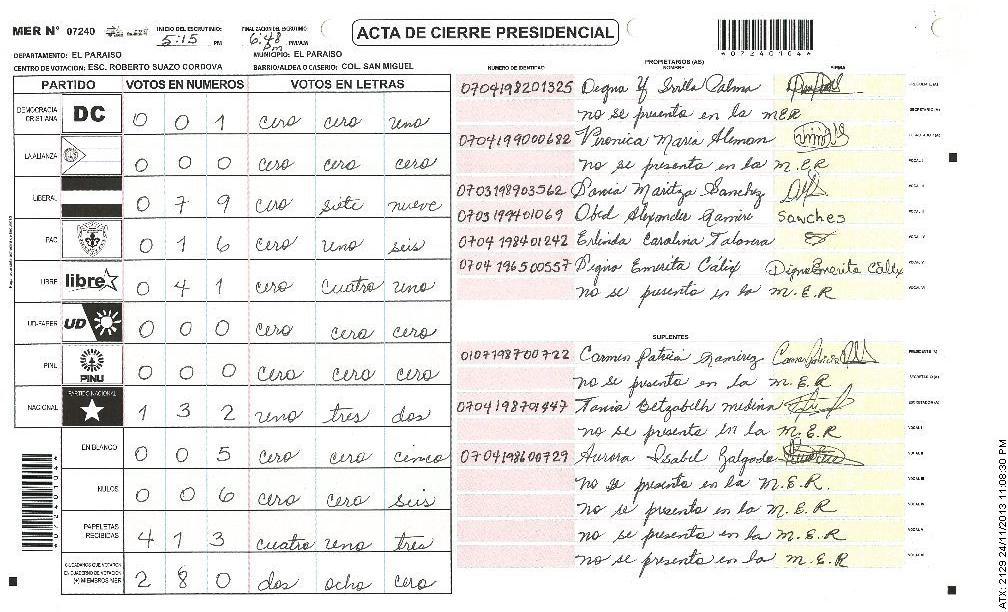 MER N° 07240
INICIO DEL ESCRUTINIO: 5:15 PM
FINALIZACION DEL ESCRUTINIO: 6:48 pm PM/AM
ACTA DE CIERRE PRESIDENCIAL
*07240104*
DEPARTAMENTO: EL PARAISO
MUNICIPIO: EL PARAISO
CENTRO DE VOTACION: ESC. ROBERTO SUAZO CORDOVA
BARRIO/ALDEA O CASERIO: COL. SAN MIGUEL
PARTIDO VOTOS EN NUMEROS VOTOS EN LETRAS
DEMOCRACIA CRISTIANA DC 0 0 1 cero cero uno
LA ALIANZA 0 0 0 cero cero cero
LIBERAL 0 7 9 cero siete nueve
PAC 0 1 6 cero uno seis
LIBRE libre 0 4 1 cero cuatro uno
UD-FAPER UD 0 0 0 cero cero cero
PINU PINU 0 0 0 cero cero cero
NACIONAL PARTIDO NACIONAL 1 3 2 uno tres dos
EN BLANCO 0 0 5 cero cero cinco
NULOS 0 0 6 cero cero seis
PAPELETAS RECIBIDAS 4 1 3 cuatro uno tres
CIUDADANOS QUE VOTARON EN CUADERNO DE VOTACION (+) MIEMBROS MER 2 8 0 dos ocho cero
PROPIETARIOS (AS)
NUMERO DE IDENTIDAD NOMBRE FIRMA
0704198201325 Degna Y Palma PRESIDENTE (A)
no se presenta en la MER SECRETARIO (A)
0704199000682 Veronica Maria Aleman
no se presenta en la M.E.R VOCAL I
0703198903562 Maritza Sanchez VOCAL II
0703199401069 Obed Alexander Ramire Sanches VOCAL III
0704198401242 Erlinda Carolina Talavera VOCAL IV
0704196500557 Digna Emerita Cálix Digna Emerita Cálix VOCAL V
no se presenta en la M.E.R VOCAL VI
SUPLENTES
0107198700722 Carmen Patricia Ramirez PRESIDENTE (A)
no se presenta en la M.E.R SECRETARIO (A)
0704198701447 Tania Betzabelh medina ESCRUTADOR (A)
no se presenta en la M.E.R VOCAL I
0704198600729 Aurora Isabel Galgado VOCAL II
no se presenta en la M.E.R VOCAL III
no se presenta en la M.E.R VOCAL IV
no se presenta en la M.E.R VOCAL V
no se presenta en la M.E.R VOCAL VI
ATX: 2129 24/11/2013 11:08:30 PM